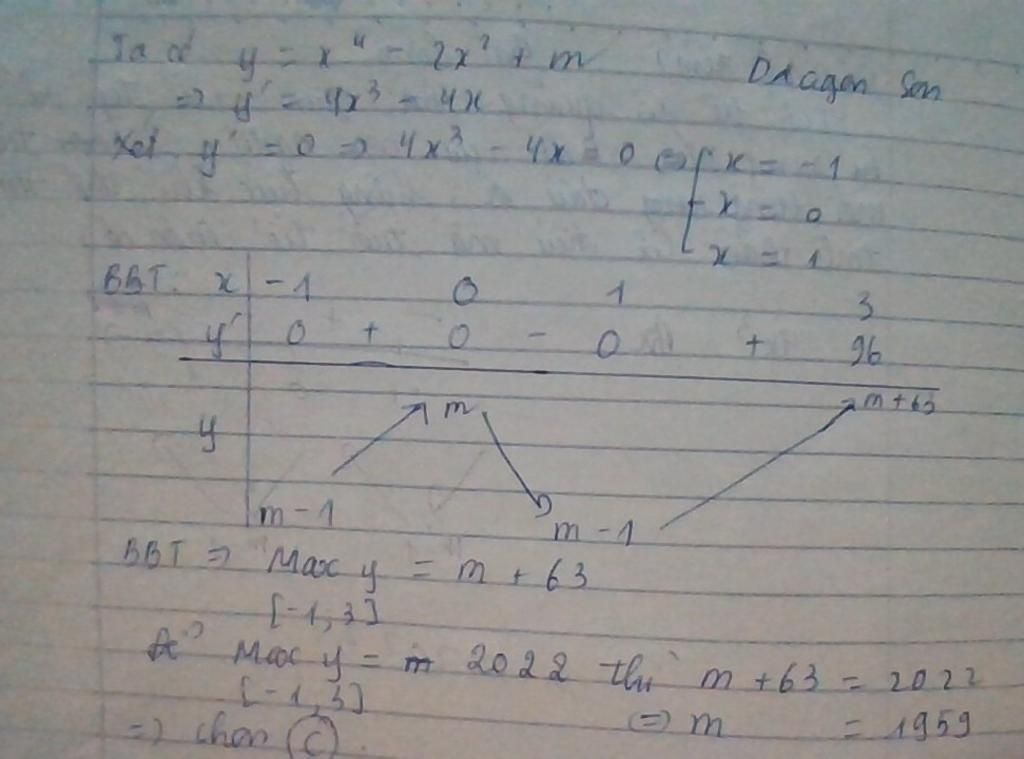 Ta có y = x⁴ - 2x² + m
Dragon Son
=> y' = 4x³ - 4x
Xét y' = 0 => 4x³ - 4x = 0 <=> [ x = -1
x = 0
x = 1
BBT. x -1 0 1 3
y' 0 + 0 - 0 + 96
m m + 63
y
m - 1 m - 1
BBT => Max y = m + 63
[-1, 3]
Để Max y = 2022 thì m + 63 = 2022
[-1, 3] <=> m = 1959
=> chọn C.